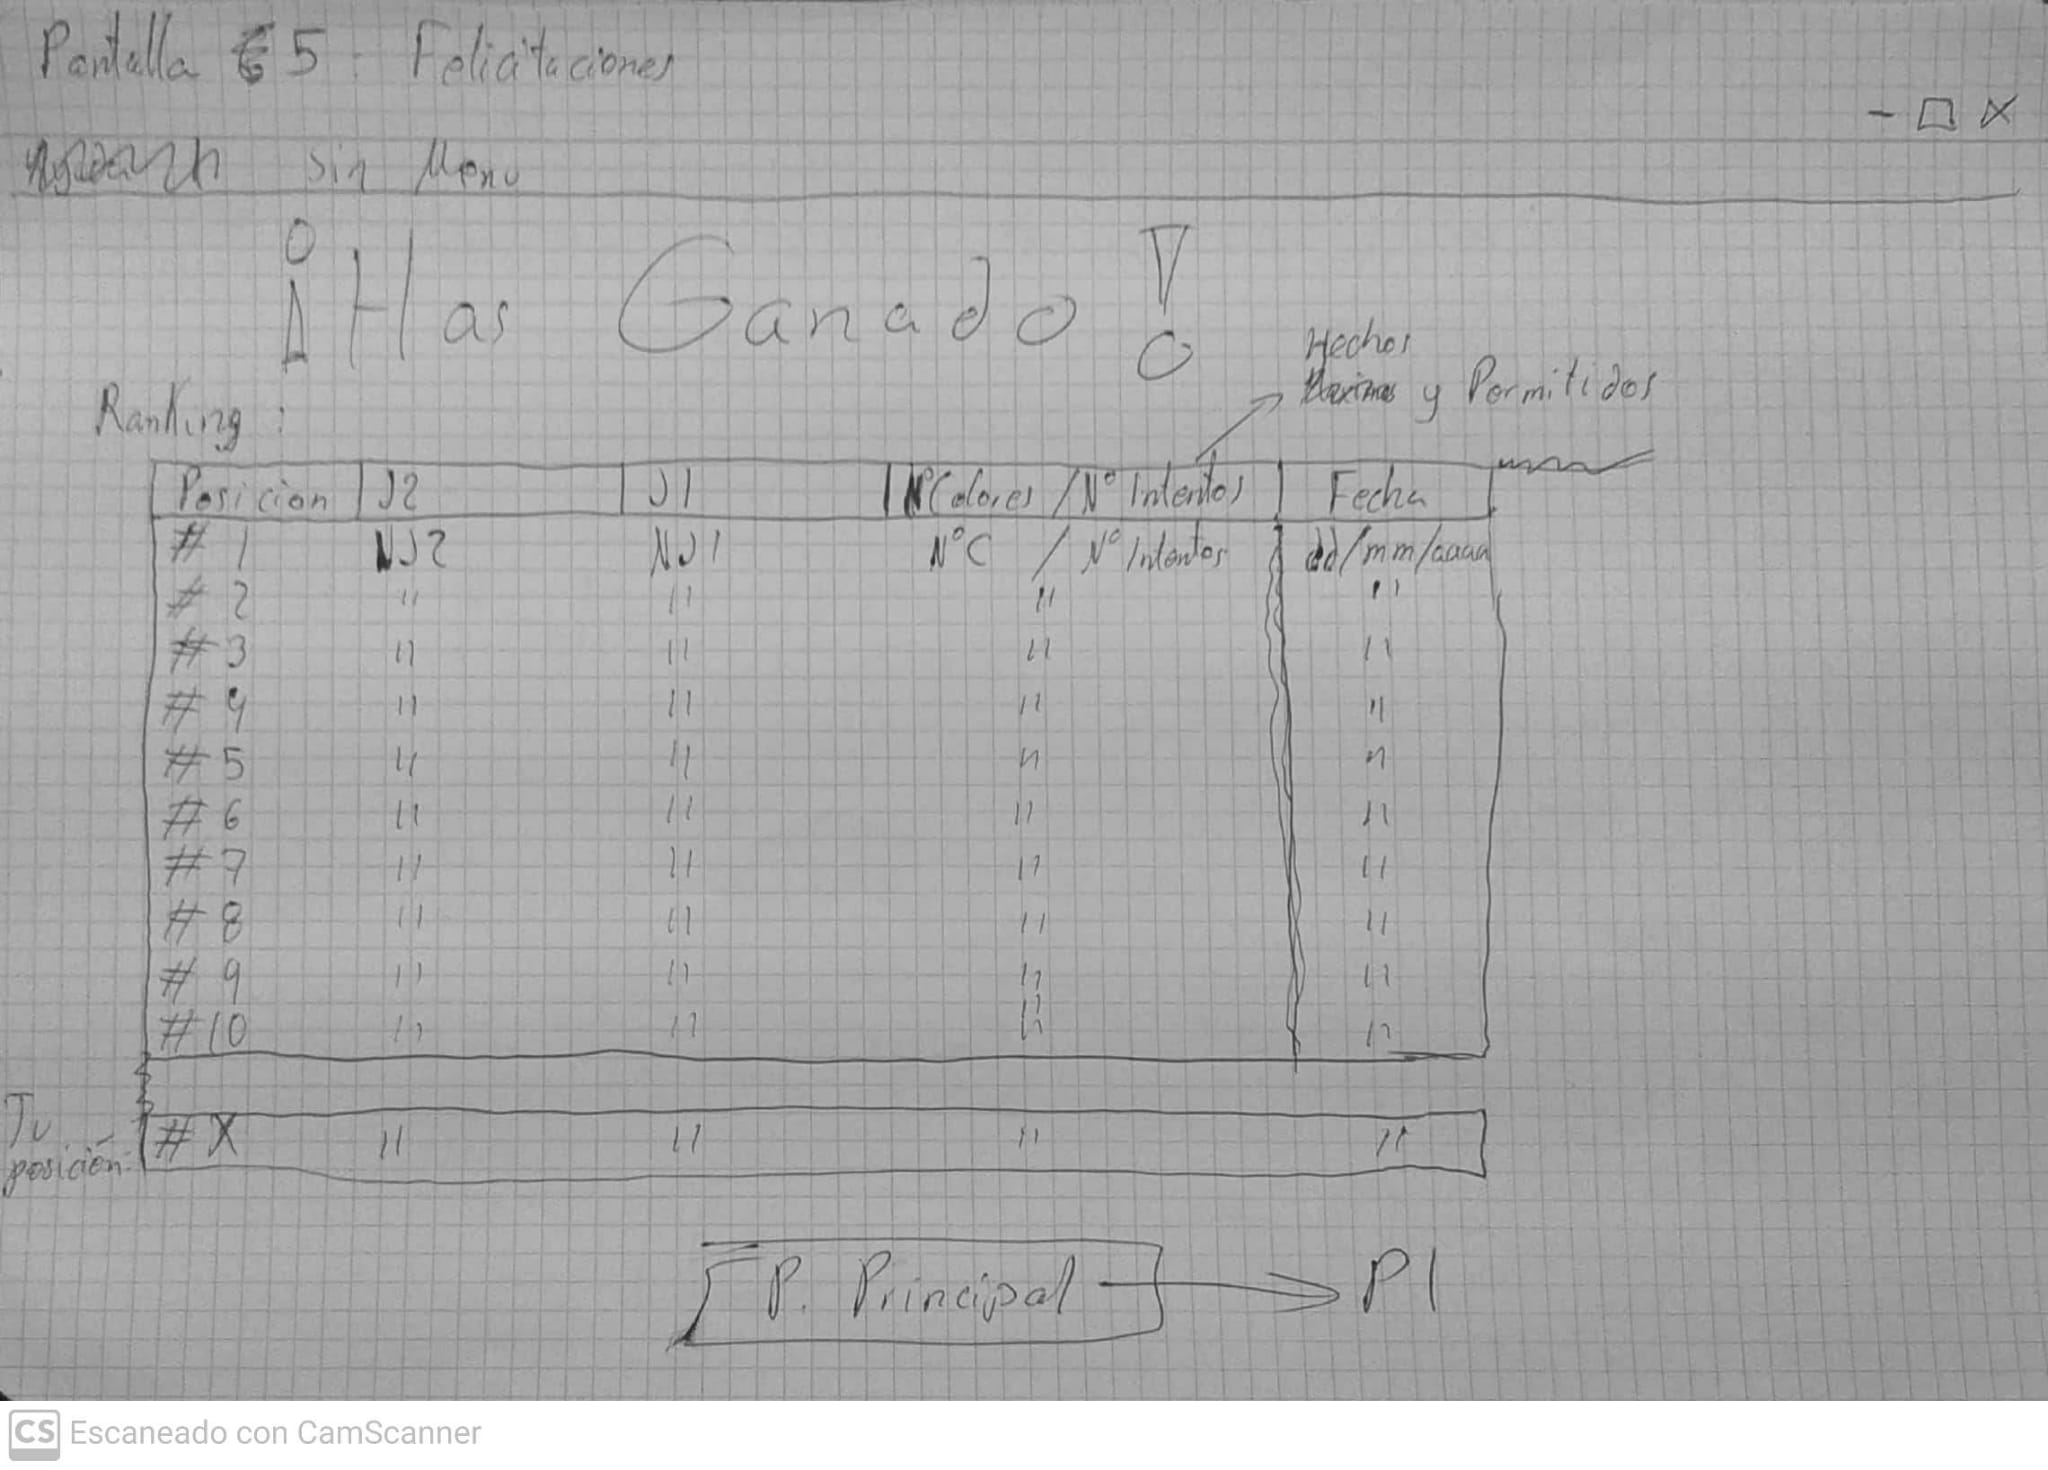 Pantalla 5: Felicitaciones
- □ X
Sin Menu
¡Has Ganado!
Hechos
y Permitidos
Ranking:
Posicion J2 J1 NºColores / Nº Intentos Fecha
# 1 NJ2 NJ1 NºC / Nº Intentos dd/mm/aaaa
# 2 " " " "
# 3 " " " "
# 4 " " " "
# 5 " " " "
# 6 " " " "
# 7 " " " "
# 8 " " " "
# 9 " " " "
# 10 " " " "
Tu
posición:
# X " " " "
P. Principal → P1
CS Escaneado con CamScanner